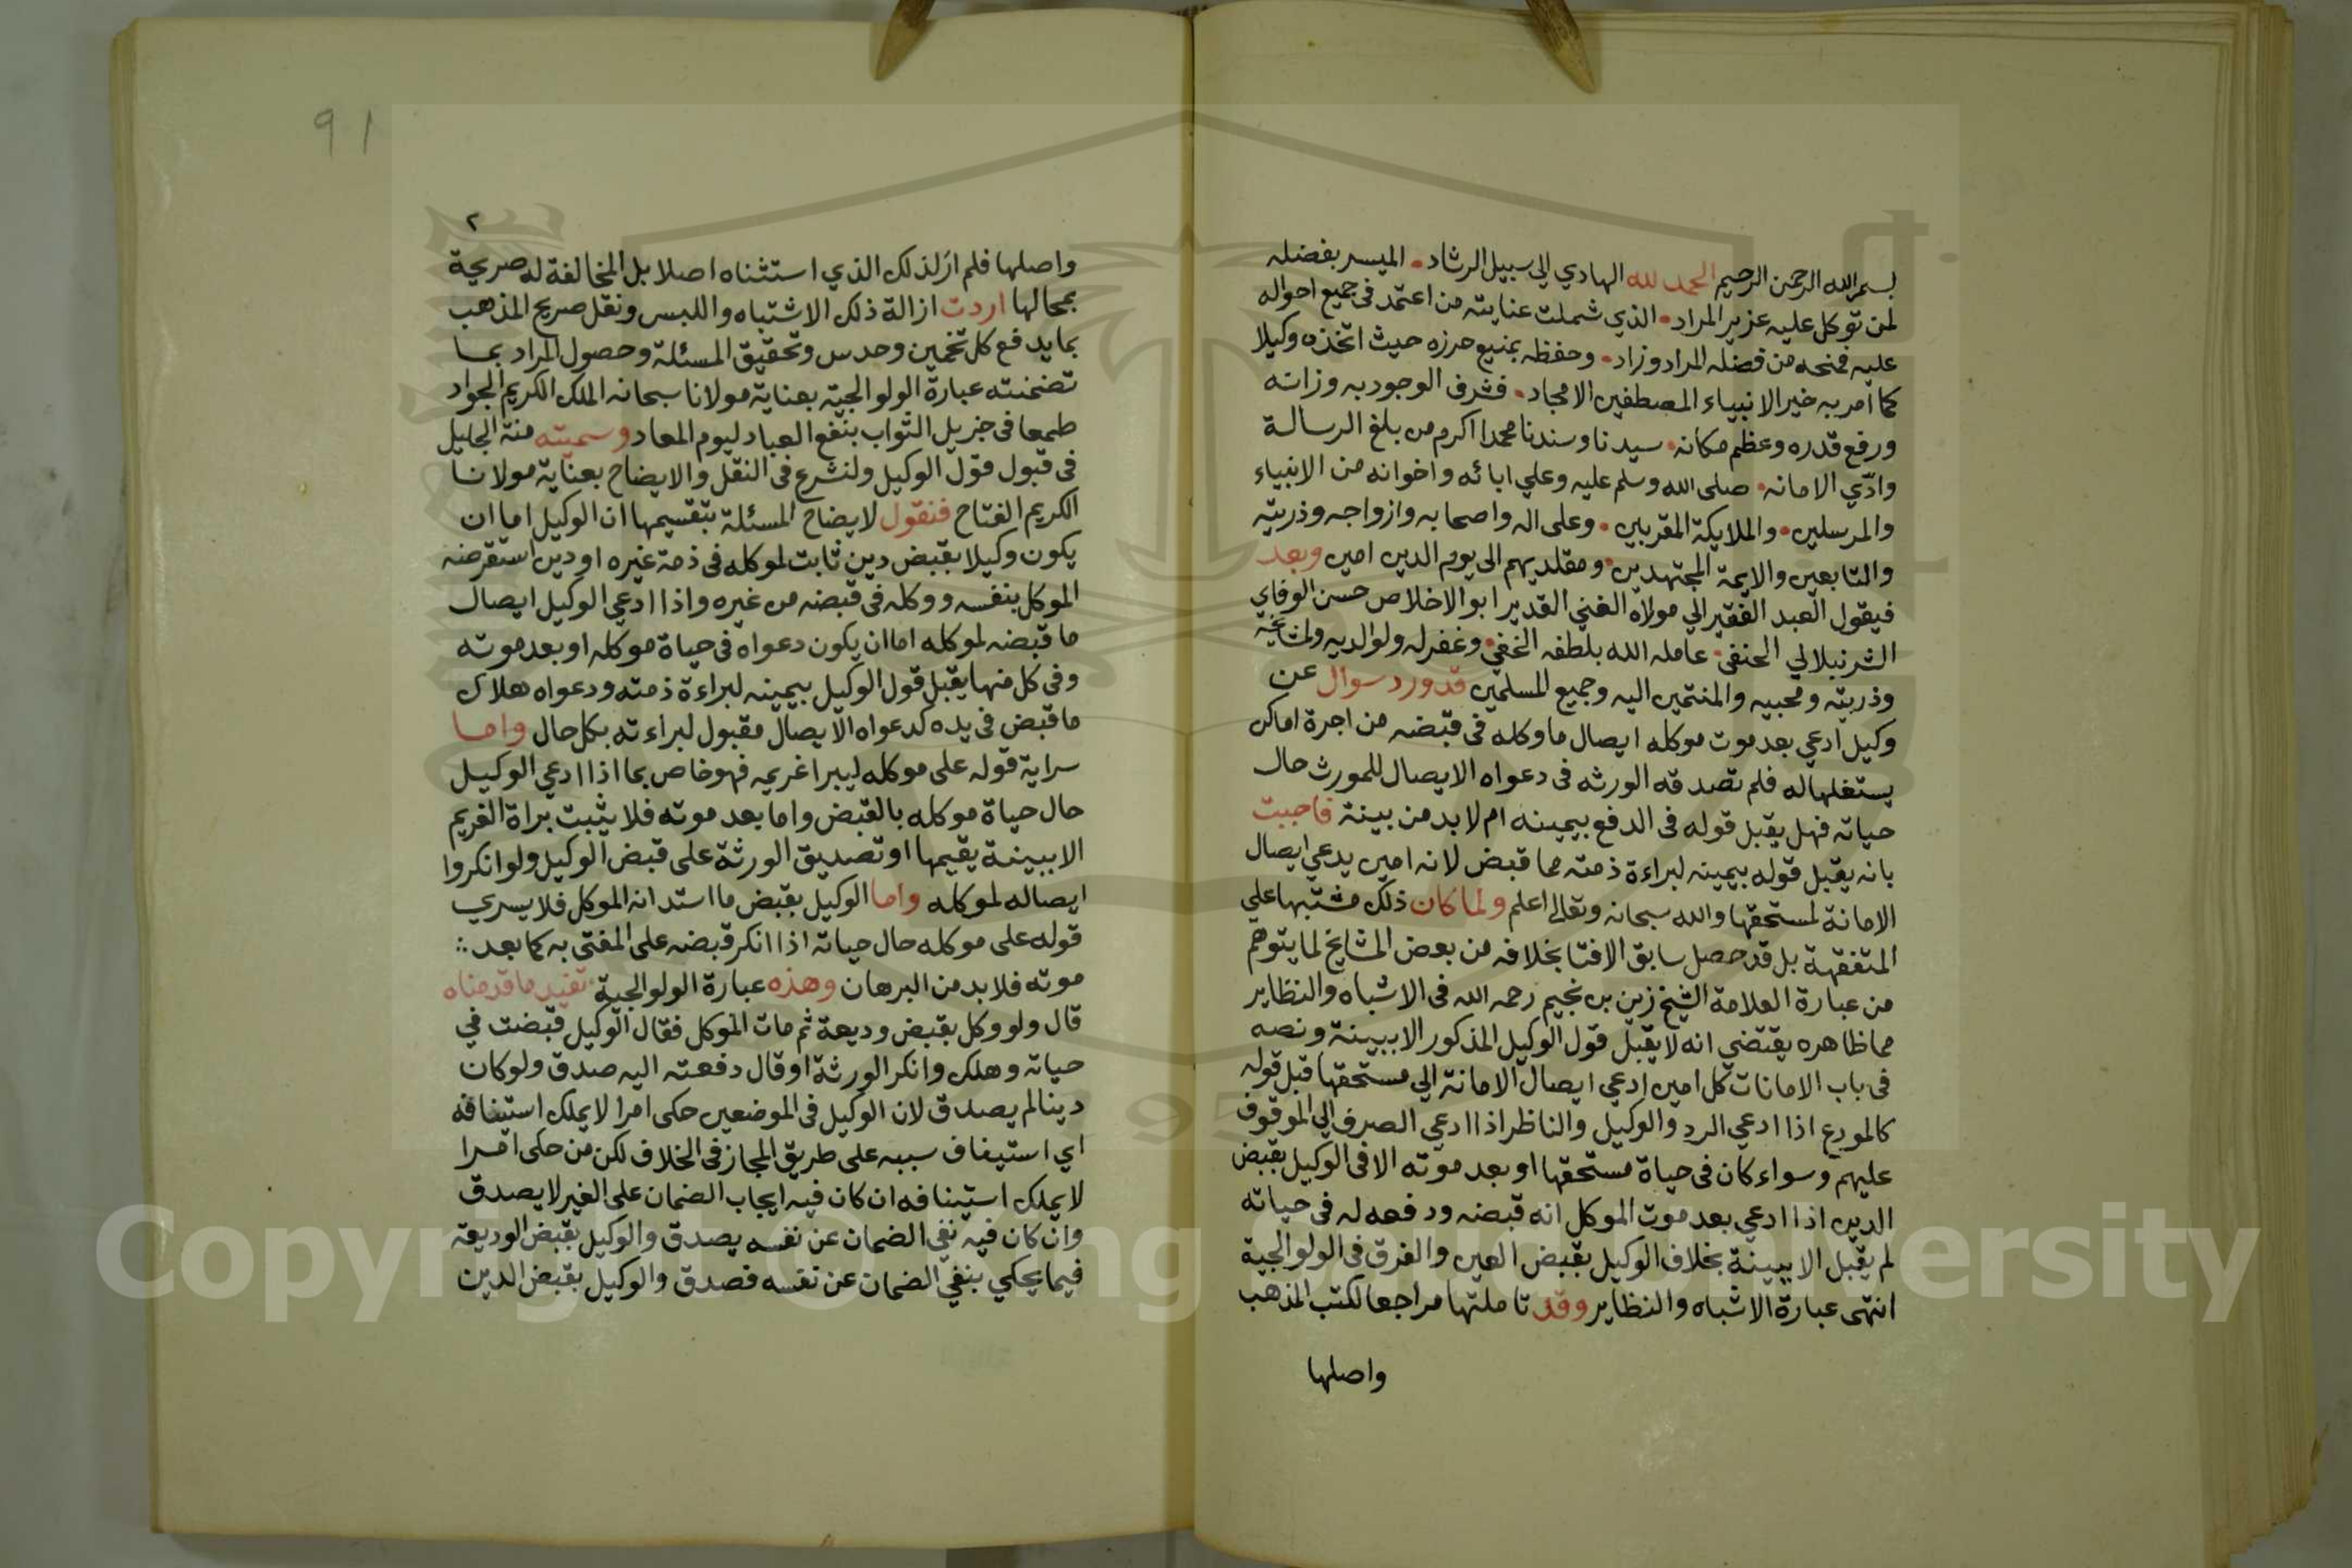 بسم الله الرحمن الرحيم الحمد لله الهادي الي سبيل الرشاد • الميسر بفضله
لمن توكل عليه عزيز المراد • الذي شملت عنايته من اعتمد في جميع احواله
عليه فمنحه من فضله المراد وزاد • وحفظه بمنيع حرزه حيث اتخذه وكيلا
كما امر به خير الانبياء المصطفين الامجاد • فشرف الوجود به وزانه
ورفع قدره وعظم مكانه • سيدنا وسندنا محمدا اكرم من بلغ الرسالة
وادّي الامانه • صلى الله وسلم عليه وعلي ابائه واخوانه من الانبياء
والمرسلين • والملايكة المقربين • وعلى اله واصحابه وازواجه وذريته
والتابعين والايمة المجتهدين • ومقلديهم الى يوم الدين امين وبعد
فيقول العبد الفقير الي مولاه الغني القدير ابو الاخلاص حسن الوفاي
الشرنبلالي الحنفي • عامله الله بلطفه الخفي • وغفر له ولوالديه ولمشايخه
وذريته ومحبيه والمنتمين اليه وجميع المسلمين قد ورد سوال عن
وكيل ادعي بعد موت موكله ايصال ما وكله في قبضه من اجرة اماكن
يستغلها له فلم تصدقه الورثه في دعواه الايصال للمورث حال
حياته فهل يقبل قوله في الدفع بيمينه ام لا بد من بينة فاجبت
بانه يقبل قوله بيمينه لبراءة ذمته مما قبض لانه امين يدعي ايصال
الامانة لمستحقها والله سبحانه وتعالى اعلم ولما كان ذلك مشتبها علي
المتفقهة بل قد حصل سابق الافتا بخلافه من بعض المشايخ لما يتوهم
من عبارة العلامة الشيخ زين بن نجيم رحمه الله في الاشباه والنظاير
مما ظاهره يقتضي انه لا يقبل قول الوكيل المذكور الا ببينة ونصه
في باب الامانات كل امين ادعي ايصال الامانة الي مستحقها قبل قوله
كالمودع اذا ادعي الرد والوكيل والناظر اذا ادعي الصرف الي الموقوف
عليهم وسواء كان في حياة مستحقها او بعد موته الا في الوكيل بقبض
الدين اذا ادعي بعد موت الموكل انه قبضه ودفعه له في حياته
لم يقبل الا ببينة بخلاف الوكيل بقبض العين والفرق في الولوالجية
انتهى عبارة الاشباه والنظاير وقد تاملتها مراجعا لكتب المذهب
واصلها
91
٢
واصلها فلم ار لذلك الذي استثناه اصلا بل المخالفة له صريحة
بمحالها اردت ازالة ذلك الاشتباه واللبس ونقل صريح المذهب
بما يدفع كل تخمين وحدس وتحقيق المسئلة وحصول المراد بما
تضمنته عبارة الولوالجية بعناية مولانا سبحانه الملك الكريم الجواد
طمعا في جزيل الثواب بنفع العباد ليوم المعاد وسميته منة الجليل
في قبول قول الوكيل ولنشرع في النقل والايضاح بعناية مولانا
الكريم الفتاح فنقول لايضاح المسئلة بتقسيمها ان الوكيل اما ان
يكون وكيلا بقبض دين ثابت لموكله في ذمة غيره او دين استقرضه
الموكل بنفسه ووكله في قبضه من غيره واذا ادعي الوكيل ايصال
ما قبضه لموكله اما ان يكون دعواه في حياة موكله او بعد موته
وفي كل منها يقبل قول الوكيل بيمينه لبراءة ذمته ودعواه هلاك
ما قبض في يده كدعواه الايصال مقبول لبراءته بكل حال واما
سراية قوله على موكله ليبرا غريمه فهو خاص بما اذا ادعي الوكيل
حال حياة موكله بالقبض واما بعد موته فلا يثبت براة الغريم
الا ببينة يقيمها او تصديق الورثة على قبض الوكيل ولو انكروا
ايصاله لموكله واما الوكيل بقبض ما استدانه الموكل فلا يسري
قوله على موكله حال حياته اذا انكر قبضه على المفتى به كما بعد ∴
موته فلا بد من البرهان وهذه عبارة الولوالجية تفيد ما قدمناه
قال ولو وكل بقبض وديعة ثم مات الموكل فقال الوكيل قبضت في
حياته وهلك وانكر الورثة او قال دفعته اليه صدق ولو كان
دينا لم يصدق لان الوكيل في الموضعين حكى امرا لا يملك استينافه
اي استيفاف سببه على طريق المجاز في الخلاف لكن من حكى امرا
لا يملك استينافه ان كان فيه ايجاب الضمان على الغير لا يصدق
وان كان فيه نفي الضمان عن نفسه يصدق والوكيل بقبض الوديعة
فيما يحكي بنفي الضمان عن نفسه فصدق والوكيل بقبض الدين